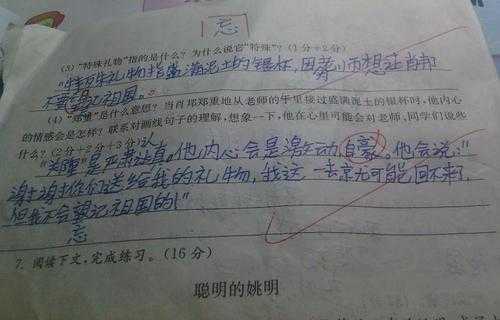 忘
(3)“特殊礼物”指的是什么?为什么说它“特殊”?(1分+2分)
“特殊礼物指盛满泥土的银杯,因 老师想让肖邦
不要望记祖国。
(4)“郑重”是什么意思?当肖邦郑重地从老师的手里接过盛满泥土的银杯时,他内心
的情感会是怎样?联系对画线句子的理解,想象一下,他在心里可能会对老师、同学们说些
什么?(2分+2分+3分)
“郑重”是严肃认真。他内心会是激动、自豪。他会说:“
谢谢你们送给我的礼物,我这一去京尤可能回不来,
但我不会望记祖国的!”
忘
7. 阅读下文,完成练习。(16分)
聪明的姚明